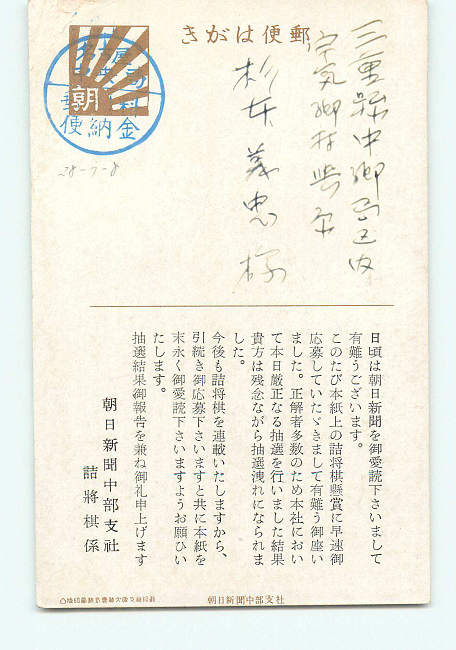 郵便はがき
朝
料金
郵便納
28-7-8
三重縣
杉本義忠様
日頃は朝日新聞を御愛読下さいまして
有難うございます。
このたび本紙上の詰将棋懸賞に早速御
応募していたゞきまして有難う御座い
ました。正解者多数のため本社におい
て本日厳正なる抽選を行いました結果
貴方は残念ながら抽選洩れになられま
した。
今後も詰将棋を連載いたしますから、
引続き御応募下さいますと共に本紙を
末永く御愛読下さいますようお願ひい
たします。
抽選結果御報告を兼ね御礼申上げます
朝日新聞中部支社
詰將棋係
朝日新聞中部支社